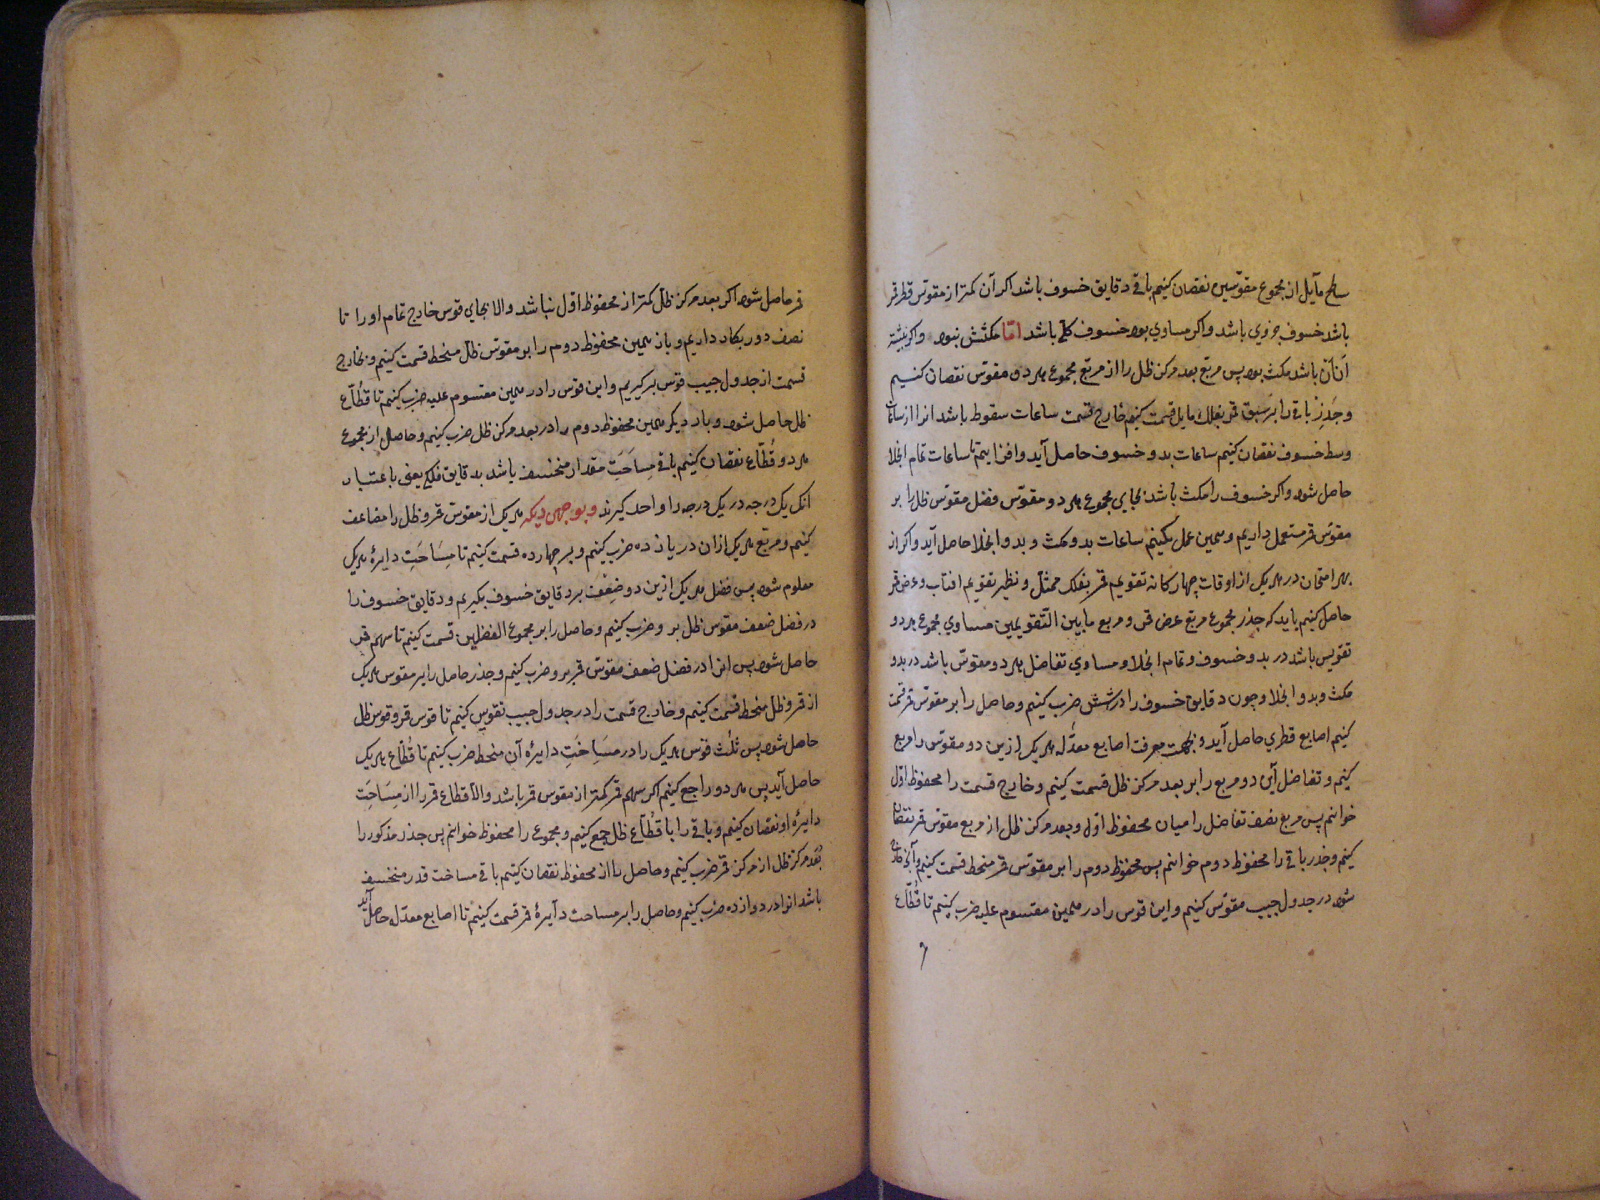 سطح مایل از مجموع مقوسین نقصان کنیم باقی دقایق خسوف باشد اکر آن کمتر از مقوس قطر قمر
باشد خسوف جزوی باشد و اکر مساوی بود خسوف کلی باشد امّا مکثش نبود و اکر بیشتر
از آن باشد مکث بود پس مربع بعد مرکز ظل را از مربع مجموع هر دو مقوس نقصان کنیم
و جذر باقی را بر سبق قمر بفلک مایل قسمت کنیم خارج قسمت ساعات سقوط باشد انرا از ساعات
وسط خسوف نقصان کنیم ساعات بدو خسوف حاصل آید و افزاییم تا ساعات تمام انجلا
حاصل شود و اکر خسوف را مکث باشد بجای مجموع هر دو مقوس فضل مقوس ظل را بر
مقوس قمر مستعمل داریم و همین عمل بکنیم ساعات بدو مکث و بدو انجلا حاصل آید و اکر از
بهر امتحان در هر یک از اوقات چهارکانه تقویم قمر بفلک ممثل و نظیر تقویم افتاب و عرض قمر
حاصل کنیم باید که جذر مجموع مربع عرض قمر و مربع مابین التقویمین مساوی مجموع هر دو
تقویس باشد در بدو خسوف و تمام انجلا و مساوی تفاضل هر دو مقوس باشد در بدو
مکث و بدو انجلا و چون دقایق خسوف را در شش ضرب کنیم و حاصل را بر مقوس قمر قسمت
کنیم اصابع قطری حاصل آید و بجهت معرفت اصابع معدله هر یک ازین دو مقوس را مربع
کنیم و تفاضل این دو مربع را بر بعد مرکز ظل قسمت کنیم و خارج قسمت را محفوظ اول
خوانیم پس مربع نصف تفاضل را میان محفوظ اول و بعد مرکز ظل از مربع مقوس قمر نقصان
کنیم و جذر باقی را محفوظ دوم خوانیم پس محفوظ دوم را بر مقوس قمر منحط قسمت کنیم و آنچه خارج
شود در جدول جیب مقوس کنیم و این قوس را در همین مقسوم علیه ضرب کنیم تا قُطّاع
قمر حاصل شود اکر بعد مرکز ظل کمتر از محفوظ اول نباشد والا بجای قوس خارج تمام او را تا
نصف دور بکار داریم و باز همین محفوظ دوم را بر مقوس ظل منحط قسمت کنیم و بخارج
قسمت از جدول جیب قوس برکیریم و این قوس را در همین مقسوم علیه ضرب کنیم تا قُطّاع
ظل حاصل شود و بار دیکر همین محفوظ دوم را در بعد مرکز ظل ضرب کنیم و حاصل از مجموع
هر دو قُطّاع نقصان کنیم باقی مِساحَتِ مقدار منخسف باشد بدقایق فلکی یعنی باعتبار
انک یک درجه در یک درجه را واحد کیرند و بوجهی دیکر هر یک از مقوس قمر و ظل را مضاعف
کنیم و مربع هر یک ازان در یازده ضرب کنیم و بر چهارده قسمت کنیم تا مِسَاحَتِ دایرهٔ هر یک
معلوم شود پس فضل هر یک ازین دو ضعف بر دقایق خسوف بکیریم و دقایق خسوف را
در فضل ضعف مقوس ظل برو ضرب کنیم و حاصل را بر مجموع الفضلین قسمت کنیم تا سهم قمر
حاصل شود پس انرا در فضل ضعف مقوس قمر برو ضرب کنیم و جذر حاصل را بر مقوس هر یک
از قمر و ظل منحط قسمت کنیم و خارج قسمت را در جدول جیب تقویس کنیم تا قوس قمر و قوس ظل
حاصل شود پس ثلث قوس هر یک را در مسَاحَتِ دایرهٔ آن منحط ضرب کنیم تا قُطّاع هر یک
حاصل آید پس هر دو را جمع کنیم اکر سهم قمر کمتر از مقوس قمر باشد والا قطاع قمر را از مِسَاحَتِ
دایرهٔ او نقصان کنیم و باقی را با قُطّاع ظل جمع کنیم و مجموع را محفوظ خوانیم پس جذر مذکور را
بُعد مرکز ظل از مرکز قمر ضرب کنیم و حاصل را از محفوظ نقصان کنیم باقی مساحت قدر منخسف
باشد انرا در دوازده ضرب کنیم و حاصل را بر مساحت دایرهٔ قمر قسمت کنیم تا اصابع معدّله حاصل آید